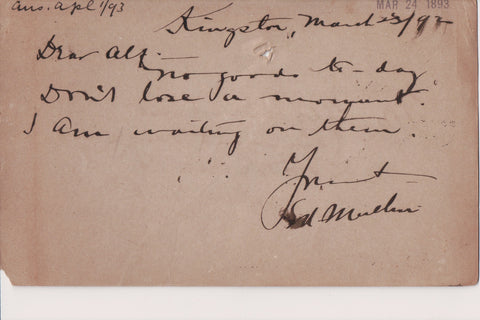 Ans. Apl 1/93
MAR 24 1893
Kingston, March 23/93
Dear Alf:—
No goods to-day
Don't lose a moment.
I am waiting on them.
Ed